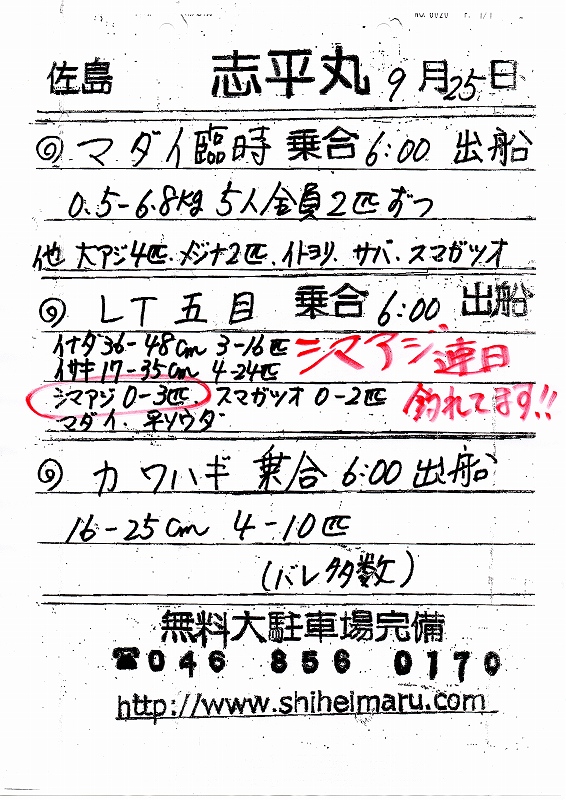 佐島 志平丸 9月25日
◎ マダイ臨時 乗合 6:00 出船
0.5-6.8kg 5人全員2匹ずつ
他 大アジ4匹.メジナ2匹.イトヨリ.サバ.スマガツオ
◎ LT五目 乗合 6:00 出船
イナダ36-48cm 3-16匹
イサキ17-35cm 4-24匹
シマアジ 0-3匹 スマガツオ 0-2匹
マダイ.平ソウダ
シマアジ、連日
釣れてます!!
◎ カワハギ 乗合 6:00 出船
16-25cm 4-10匹
(バレ多数)
無料大駐車場完備
☎046 856 0170
http://www.shiheimaru.com